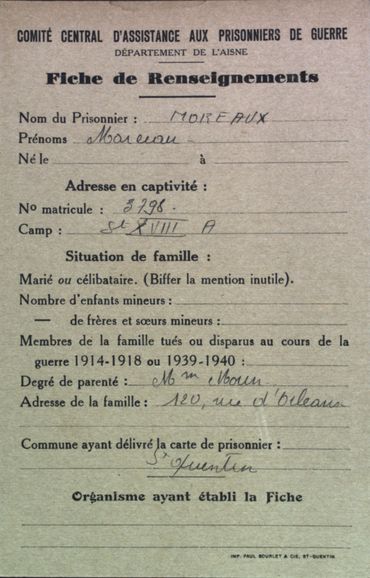 COMITÉ CENTRAL D'ASSISTANCE AUX PRISONNIERS DE GUERRE
DÉPARTEMENT DE L'AISNE
Fiche de Renseignements
Nom du Prisonnier : MOREAUX
Prénoms Marceau
Né le à
Adresse en captivité :
No matricule : 3798
Camp : St XVIII A
Situation de famille :
Marié ou célibataire. (Biffer la mention inutile).
Nombre d'enfants mineurs :
— de frères et sœurs mineurs :
Membres de la famille tués ou disparus au cours de la
guerre 1914-1918 ou 1939-1940 :
Degré de parenté : Mme
Adresse de la famille : 120, rue d'Orléans
Commune ayant délivré la carte de prisonnier :
St Quentin
Organisme ayant établi la Fiche
IMP. PAUL BOURLET & CIE, ST-QUENTIN.